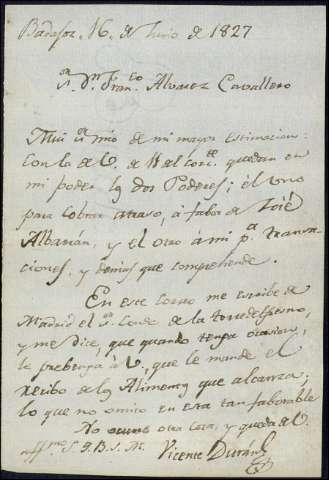 Badajoz, 16, de Junio de 1827
Sr. Dn. Franco. Alvarez Cavallero
Mui Sr. mio de mi mayor Estimacion:
Con la de V. de 11 del corte. quedan en
mi poder los dos Poderes; el uno
para Cobrar atraso, á fabor de José
Albarrán, y el otro á mi pa. transac
ciones, y demas que comprehende.
En este Correo me escribe de
Madrid el Sr. Conde de la torre del fresno,
y me dice, que quando tenga ocasion,
le prebenga á V. que le mande el
recibo de los Alimentos que alcanza;
lo que no omito en esta tan faborable
No ocurre otra cosa, y queda de V.
affmo. S. Q. B. S. M. Vicente Durán